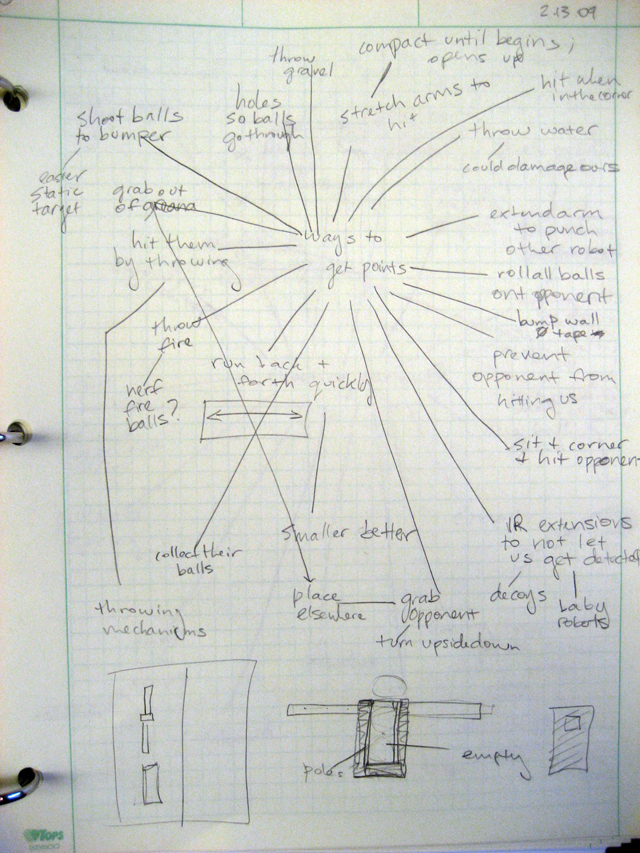 2.13.09
compact until begins;
opens up
throw
gravel
stretch arms to
hit
hit when
in the corner
holes
so balls
go through
shoot balls
to bumper
throw water
could damage ours
easier
static
target
grab out
of
extend arm
to punch
other robot
hit them
by throwing
ways to
get points
roll all balls
ont opponent
bump wall
tape
throw
fire
prevent
opponent from
hitting us
run back +
forth quickly
nerf
fire
balls?
sit + corner
+ hit opponent
smaller better
IR extensions
to not let
us get detected
collect their
balls
place
elsewhere
grab
opponent
decoys
baby
robots
throwing
mechanisms
turn upsidedown
poles
empty
TOPS